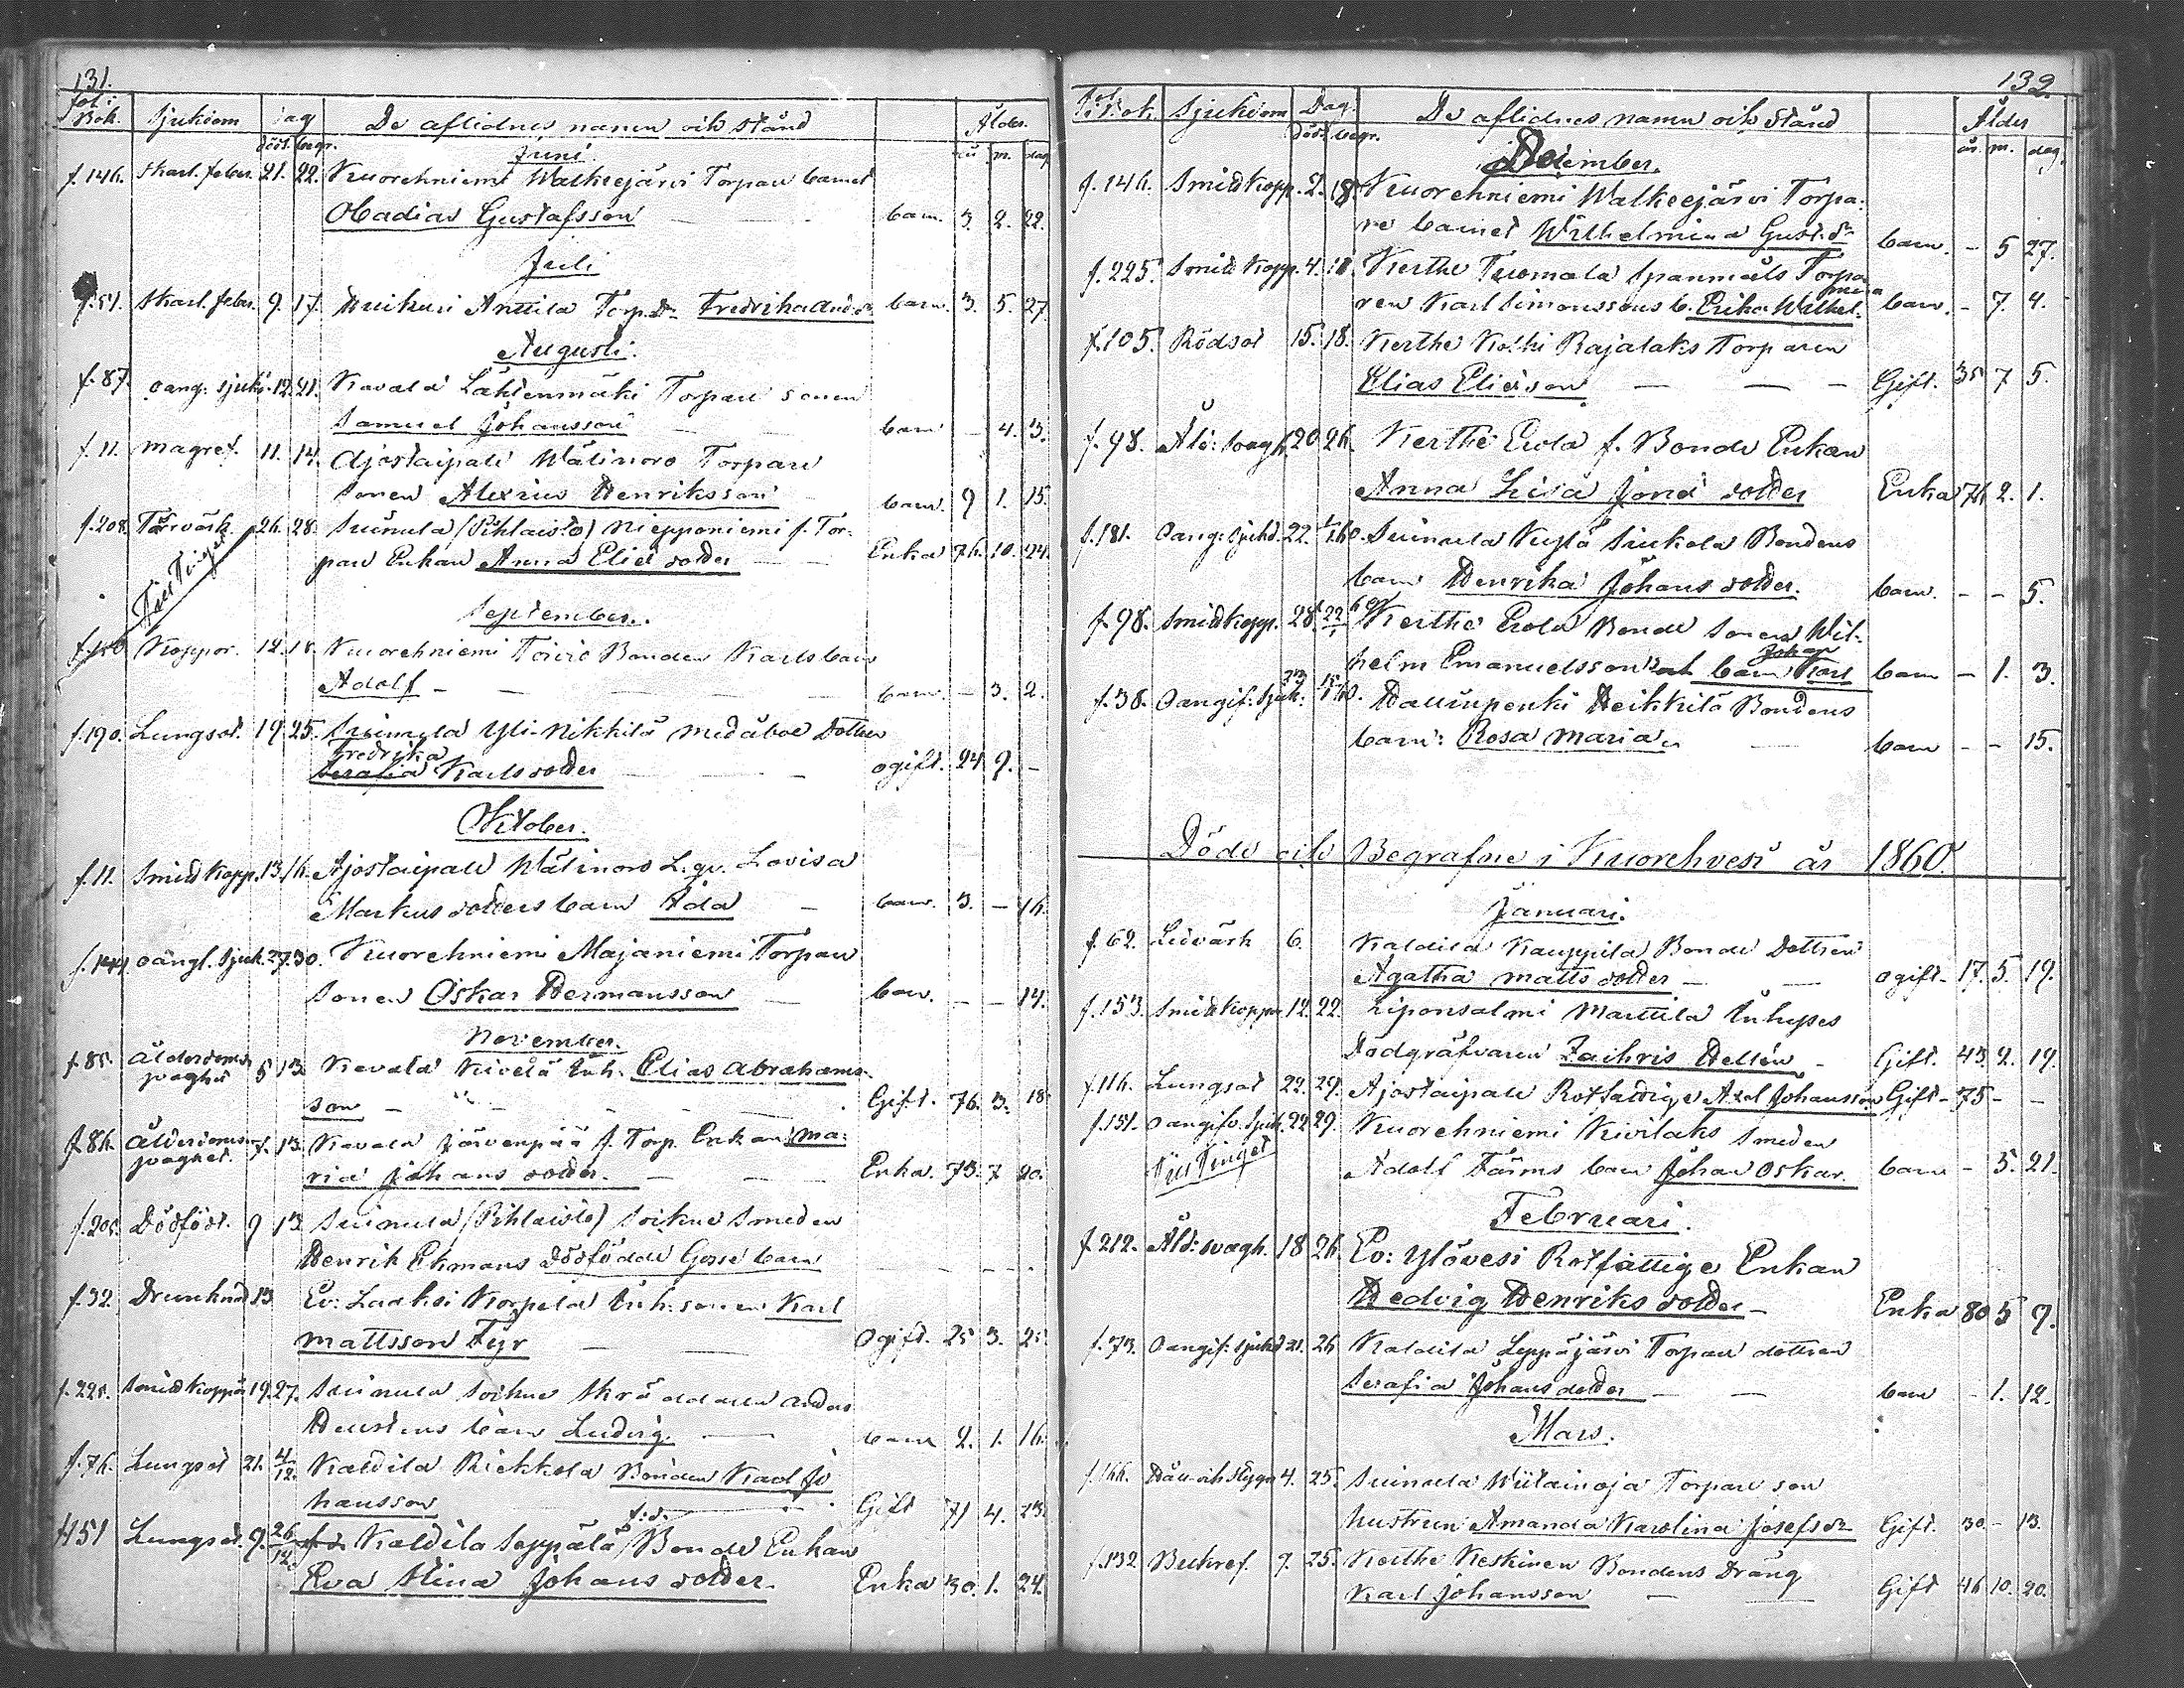 131.
fol: i Bok. Sjukdom Dag De aflidnes namn och stånd Ålder.
död. begr. år m. dag
Juni.
f.146. Skarl. feber. 21. 22. Kuorehniemi Walkeejärvi Torpare barnet
Obadias Gustafsson barn. 3. 2. 22.
Juli
f.51. Skarl. feber. 9. 17. Anttila Torp. dr Fredrika And. dr barn. 3. 5. 27.
Augusti.
f.87. oang: sjukd. 12. 21. Kavala Lähtenmäki Torpare sonen
Samuel Johansson barn - 4. 3.
f.11. magref. 11. 14. Ajostaipale Wälinoro Torpare
sonen Alexius Henriksson barn. 9 1. 15.
f.208. Torrvärk. 26. 28. Suinula (Pihlaisto) Niepponiemi f. Tor-
pare Enkan Anna Eliæ dotter Enka 76. 10. 24.
Till Tinget
September.
Koppor. 12. 18. Kuorehniemi Toivio Bonden Karls barn
Adolf barn. - 3. 2.
f.190. Lungsot. 19. 25. Suinula Yli-Nikkilä medåboe Dotter
Fredrika
Serafia Karlsdotter ogift. 24 9. -
Oktober.
f.11. Smittkopp. 13. 16. Ajostaipale Wälinoro L.gv. Lovisa
Markus dotters barn Ada barn. 3. - 16.
f.144 oangf. sjuk. 27. 30. Kuorehniemi Majaniemi Torpare
sonen Oskar Hermansson barn. - - 14.
November.
f.85. Ålderdoms svaghet 5 13. Kavala Kivelä Inh. Elias Abrahams-
son Gift. 76. 3. 18
f.86. Ålderdoms svaghet. 7. 13. Kavala Järvenpää f. Torp. Enkan Ma-
ria Johans dotter. Enka. 73. 7 20.
f.205. Dödfödt. 9 13 Suinula (Pihlaisto) Soikue Smeden
Henrik Ekmans dödfödde Gosse barn
f.32. Drunknad 13 Ev: Laaksi Korpela Inh. sonen Karl
Mattsson Fyr Ogift. 25 3. 25.
f.225. Smittkoppor 19. 27. Suinula Soikue Skräddaren Anders
barn Ludvig. barn 2. 1. 16.
f.76. Lungsot 21. 4/12. Kaldila Riekkola Bonden Karl Jo
hansson Gift 71 4. 23.
f151 Lungsot. 9. 26/12. Kaldila Seppälä f.d. Bonde Enkan
Eva Stina Johans dotter. Enka 30. 1. 24.
132.
Fol. i Bok. Sjukdom Dag. De aflidnes namn och stånd Ålder
död. begr. år. m. dag.
December.
f.146. Smittkopp. 2. 18. Kuorehniemi Walkeejärvi Torpa-
re barnet Wilhelmina Gust. dr barn. - 5 27.
f.225. Smittkopp. 4. 18. Kerthe Tuomala Spanmåls Torpa-
ren Karl Simonssons b. Erika Wilhel- mina barn. - 7. 4.
f.105. Rödsot 15. 18. Kerthe Koski Rajalaks Torparen
Elias Eliæson Gift. 35 7 5.
f.98. Åld: svagh. 20 26. Kerthe Erola f. Bonde Enkan
Anna Lisa Jona dotter Enka 76 2. 1.
f.181. Oang: sjukd. 22. 1/1 60. Suinula Kylä Siukola Bondens
barn Henrika Johans dotter. barn. - - 5.
f.98. Smittkopp. 28. 22/1 60 Kerthe Erola Bonde sonens Wil-
helm Emanuelssons barn Karl Johan barn - 1. 3.
f.38. Oangif: sjuk: 23 15/1 60. Hallinpenki Heikkilä Bondens
barn: Rosa Maria barn - - 15.
Döde och Begrafne i Kuorehvesi år 1860.
Januari.
f.62. Ledvärk 6. Kaldila Kauppila Bonde Dottren
Agatha Matts dotter ogift. 17. 5. 19.
f.153. Smittkoppor 12. 22. Liponsalmi Marttila Inhyses
Dödgräfvaren Zachris Hellén Gift. 43 2. 19.
f.116. Lungsot 22. 29. Ajostaipale Rotfattige Axel Johansson Gift - 75 - -
f.151. Oangifv. sjuk. 22 29. Kuorehniemi Kivilaks Smeden
Till Tinget Adolf Färms barn Johan Oskar. barn - 5. 21.
Februari.
f.212. Åld: svagh. 18 26. Ev: Ylövesi Rotfattige Enkan
Hedvig Henriks dotter Enka 80 5 9.
f.73. Oangif: sjukd 21. 26 Kaldila Leppäjärvi Torpare dottren
Serafia Johans dotter barn - 1. 12.
Mars.
f.166. Håll och Stygn 4. 25. Suinula Wiitainoja Torpare son
hustrun Amanda Karolina Josefs dr Gift. 30. - 13.
f.132 Bukref. 9. 25. Kerthe Keskinen Bondens Dräng
Karl Johansson Gift 46 10. 20.